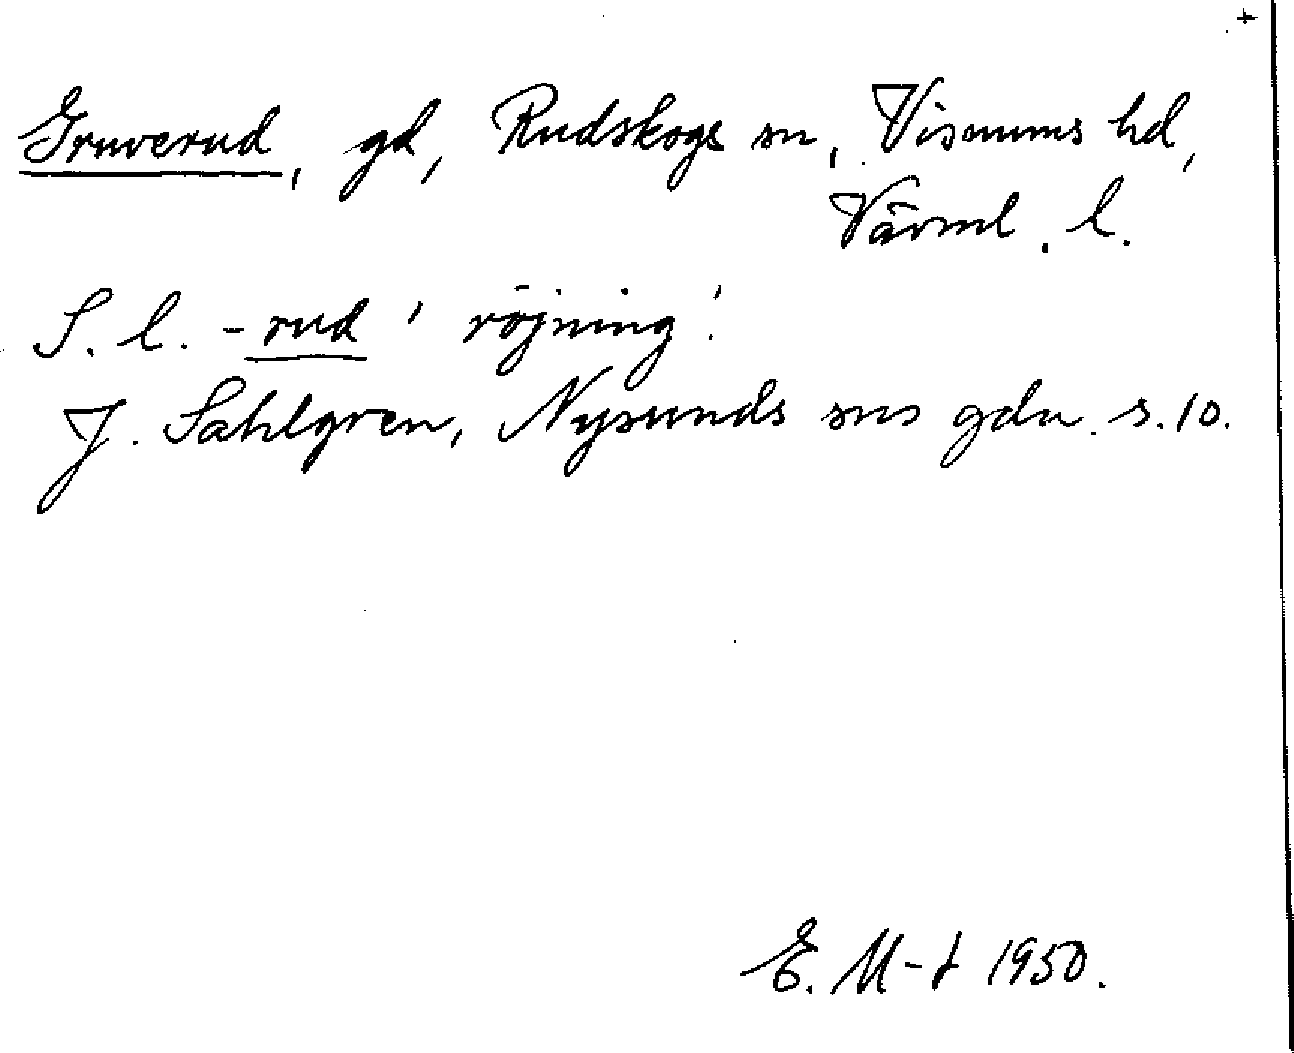 +
Gruverud, gd, Rudskogs sn, Visnums hd,
Värml. l.
S. l. -rud 'röjning'.
J. Sahlgren, Nysunds sns gdn. s. 10.
E. M-t 1950.